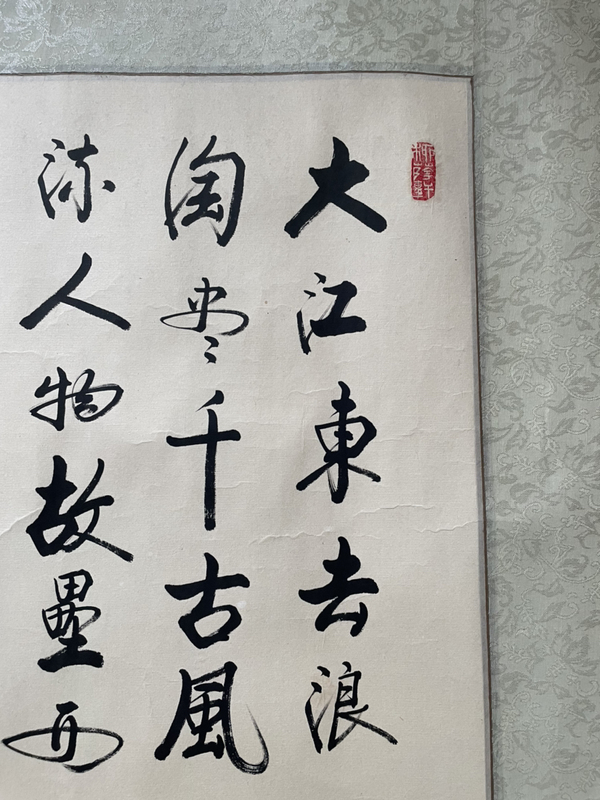 大江東去浪
淘尽千古風
流人物故壘西